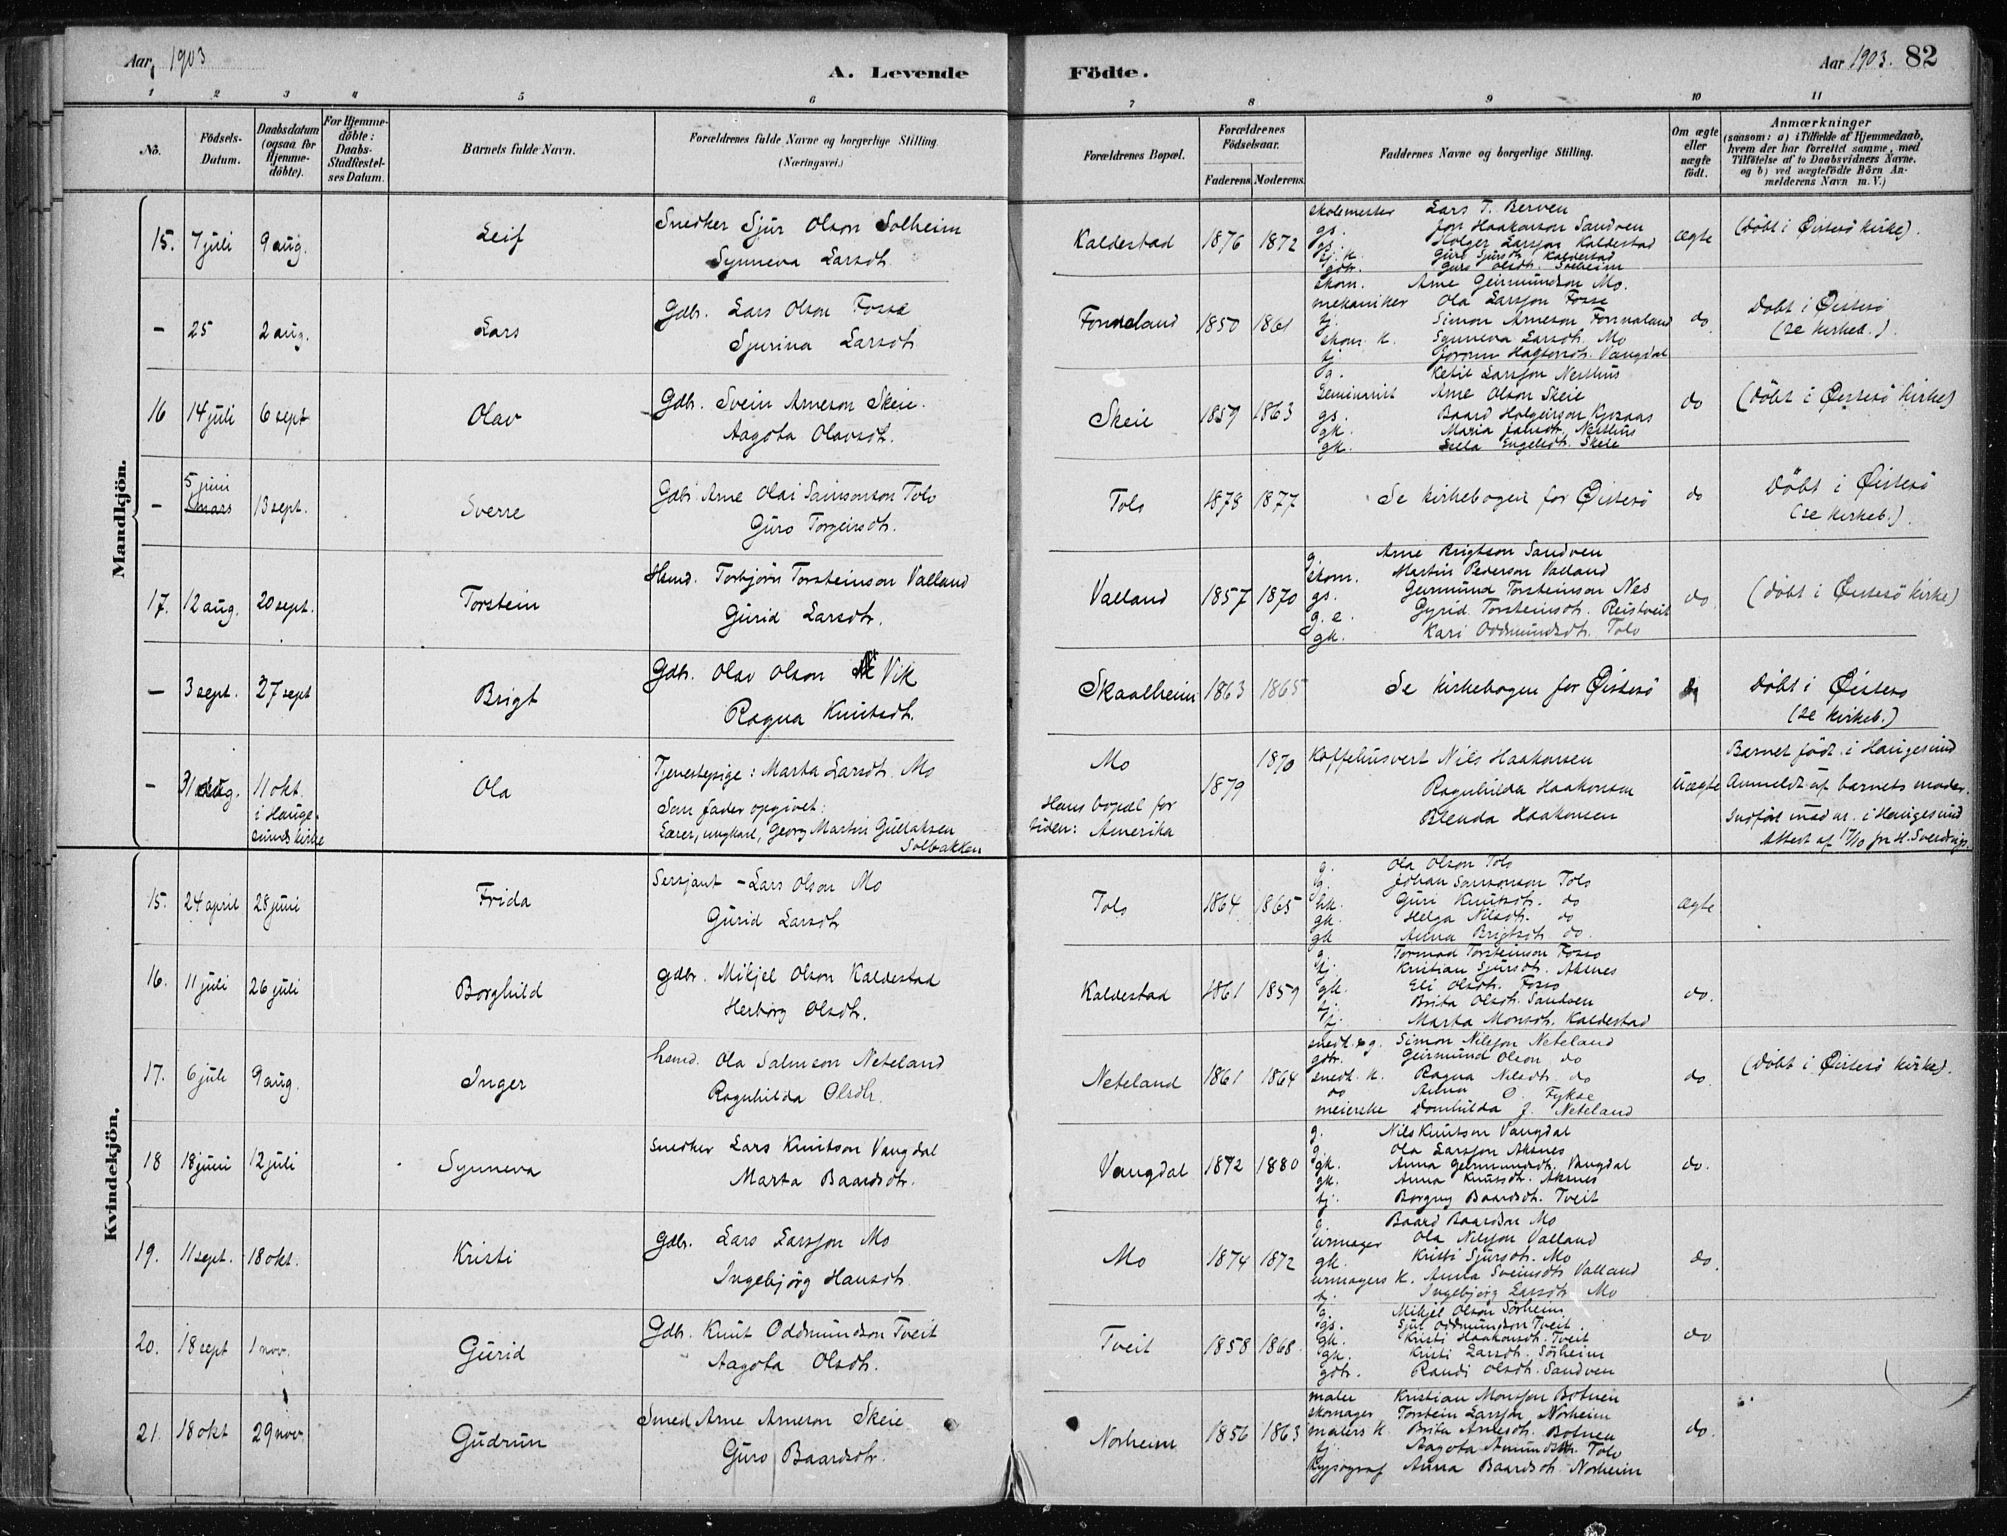 Aar, 1903
A. Levende
Födte.
Aar 1903. 82
1 2 3 4 5 6 7 8 9 10 11
No.
Födsels-Datum.
Daabsdatum (ogsaa for Hjemme-döbte).
For Hjemme-döbte: Daabs-Stadfæstel-ses Datum.
Barnets fulde Navn.
Forældrenes fulde Navne og borgerlige Stilling. (Næringsvei.)
Forældrenes Bopæl.
Forældrenes Födselsaar.
Faderens. Moderens.
Faddernes Navne og borgerlige Stilling.
Om ægte eller uægte födt.
Anmærkninger
(saasom: a) i Tilfælde af Hjemmedaab, hvem der har forrettet samme, med Tilföielse af to Daabsvidners Navne. og b) ved uægtefödte Börn An-melderens Navn m. V.)
Mandkjön.
15. 7 juli 9 aug. Leif
Snedker Sjur Olson Solheim
Synneva Larsdtr.
Kaldestad 1876 1872
skolemester Lars T. Berven
gs. Jon Haakonson Sandven
gs. Holger Larsson Kaldestad
tj. k. Guro Sjursdt. Kaldestad
gdtr. Guro Olsdtr. Solheim
ægte (Döbt i Øistesö kirke).
- 25 2 aug. Lars
Gdbr. Lars Olson Fosse
Sjurina Larsdt
Fonneland 1850 1861
skom. Arne Geirmundson Mo.
mekaniker Ola Larsson Fosse
tj. Simon Arneson Fonnaland
skom. k. Synneva Larsdt. Mo
tj Vangdal
do Döbt i Øistesö
(se kirkeb.).
16 14 juli 6 sept Olav
Gdbr. Svein Arneson Skeie.
Aagota Olavsdt.
Skeie 1859 1863
g. Ketil Larsson Nesthus
Seminarist Arne Olson Skeie
gs. Baard Holgeirson
gk. Maria Nesthus
gk. Engelsdt. Skeie
do (döbt i Øistesö kirke)
- 5 juni mars 13 sept. Sverre
Gdbr. Arne Olai Samsonson Tolo
Guro Torgeirsdtr.
Tolo 1878 1877
Se kirkebogen for Øistesö
do Döbt i Øistesö
(se kirkeb.).
17. 12 aug. 20 sept. Torstein
Husmd. Torbjörn Torsteinson Valland
Gurid Larsdtr.
Valland 1857 1870
g. Arne Brigtson Sandven
skom. Martin Pederson Valland
gs. Geirmund Torsteinson Nes
g. e. Gyrid Torsteinsdt. Reistveit
gk. Kari Oddmundsdt. Tolo
do. (döbt i Øistesö kirke)
- 3 sept. 27 sept Brigt
Gdbr. Olav Olson Vik
Ragna Knutsdt.
Skaalheim 1863 1865
Se kirkebogen for Øistesö
do Döbt i Øistesö
(se kirkeb.)
- 31 aug. 11 okt. i Hauge-sunds kirke Ola
Tjenestepige: Marta Larsdt. Mo
Som fader opgivet:
Lærer, ungkarl, Georg Martin Gullaksen
Solbakken
Mo
Hans bopæl for tiden: Amerika
1879 1870
Kaffehusvert Nils Haakonsen
Ragnhilda Haakonsen
Blenda Haakonsen
uægte
Barnet födt i Haugesund
Anmeldt af barnets moder.
Indfört uden nr. i Haugesund
Attest af 17/10 fra H. Sverdrup.
Kvindekjön.
15. 24 april 28 juni Frida
Sersjant - Lars Olson Mo
Gurid Larsdt
Tolo 1864 1865
g. Ola Olson Tolo
g. Johan Samsonson Tolo
hk. Guri Knutsdt. do
gk. Helga Nilsdt. do
gk Anna Brigtsdt do.
ægte
16. 11 juli 26 juli Borghild
gdbr. Mikjel Olson Kaldestad
Herborg Olsdtr.
Kaldestad 1861 1859
g. Tormod Torsteinson Fosso
tj. Kristian Sjursdt. Aksnes
gk. Eli Olsdt. Fosso
tj. Brita Olsdt. Sandven
tj. Marta Monsdt. Kaldestad
do.
17. 6 juli 9 aug. Inger
husmd. Ola Salmson Neteland
Ragnhilda Olsdtr.
Neteland 1861 1864
snedk. og g. Simon Nilsson Neteland
gdbr. Geirmund Olson do
snedk. k. Ragna Nilsdt. do
do Anna O. Fykse
meierske Domhilda J. Neteland
do. (döbt i Øistesö kirke).
18 18 juni 12 juli Synneva
snedker Lars Knutson Vangdal
Marta Baardsdtr.
Vangdal 1872 1880
g. Nils Knutson Vangdal
g. Ola Larsson Aksnes
gk. Anna Geirmundsdt. Vangdal
gk. Anna Knutsdt. Aksnes
tj. Borgny Baardsdt. Tveit
do.
19. 11 sept. 18 okt. Kristi
Gdbr. Lars Larsson Mo
Ingebjörg Hansdt
Mo 1874 1872
g. Baard Baardson Mo
urmager Ola Nilsson Valland
gk. Kristi Sjursdt. Mo
urmagers k. Anna Sveinsdt Valland
tj. Ingebjörg Larsdt Mo
do.
20. 18 sept 1 nov. Gurid
Gdbr. Knut Oddmundson Tveit
Aagota Olsdtr.
Tveit 1858 1868.
g. Mikjel Olson Sörheim
gs. Sjur Oddmundson Tveit
gk. Kristi Haakonsdt. Tveit
gk. Kristi Larsdt. Sörheim
gdtr. Randi Olsdt. Sandven
do
21. 18 okt 29 nov. Gudrun
Smed Arne Arneson Skeie
Guro Baardsdtr.
Norheim 1856 1863
maler Kristian Monsson Botnen
skomager Torstein Larsson Norheim
malers k Brita Arnesdt. Botnen
tj. Aagota Amundsdt. Tolo
Anna Baardsdt. Norheim
do.